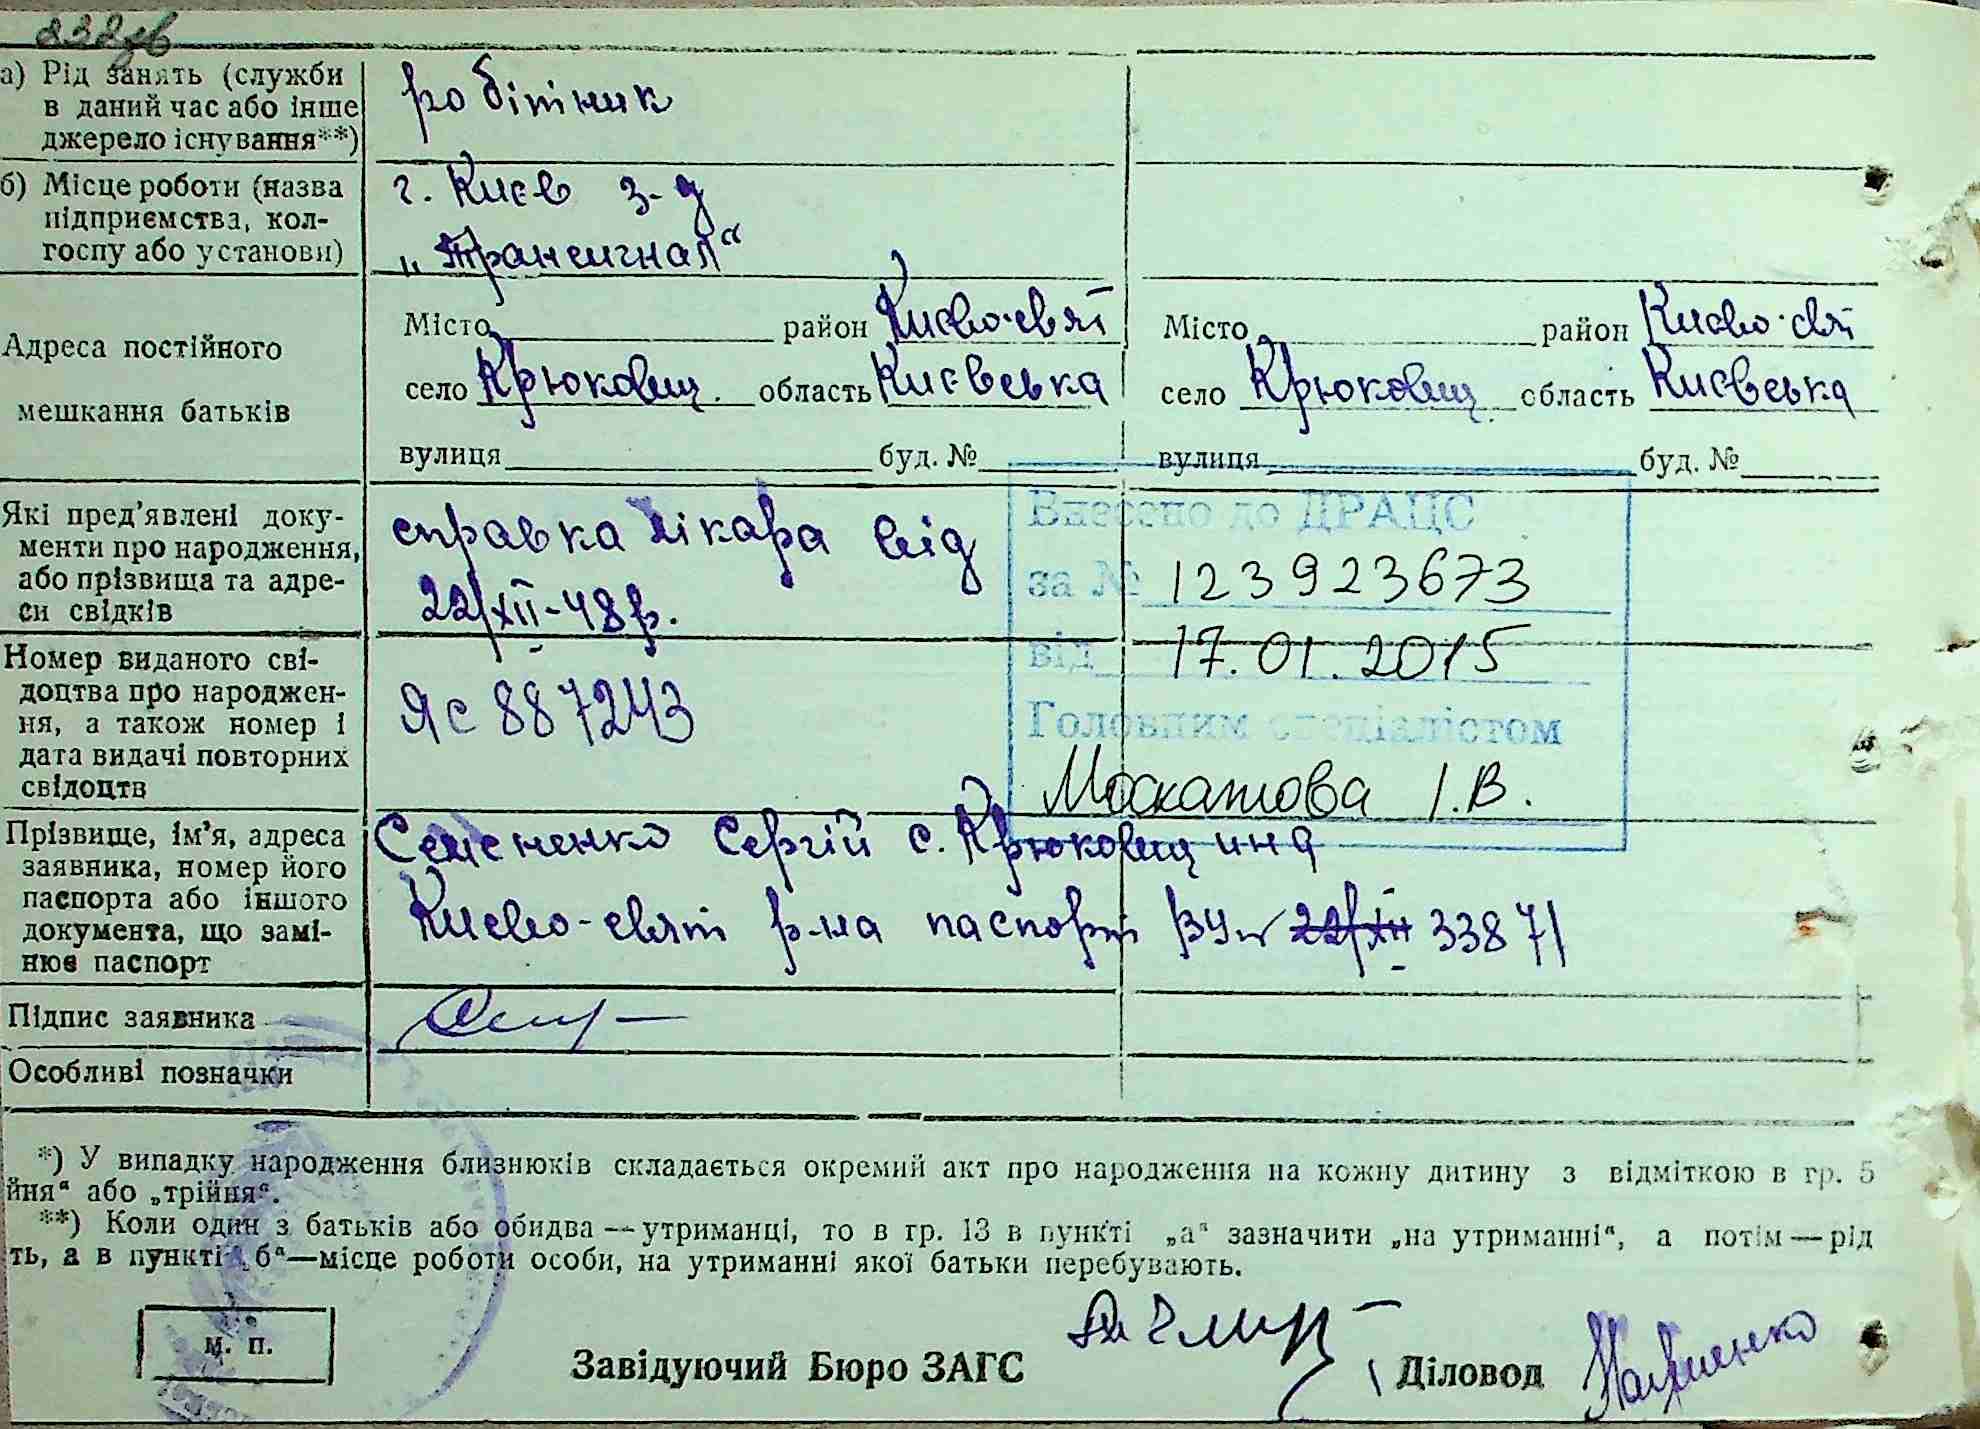 а) Рід занять (служби
в даний час або інше
джерело існування**)
робітник
б) Місце роботи (назва
підприємства, кол-
госпу або установи)
г. Києв з-д
„Трансигнал“
Адреса постійного
мешкання батьків
Місто район Києво-свят
село Крюковщ. область Києвська
вулиця буд. №
Місто район Києво-свят
село Крюковщ область Києвська
вулиця буд. №
Які пред'явлені доку-
менти про народження,
або прізвища та адре-
си свідків
справка лікара від
22/XII-48 р.
Внесено до ДРАЦС
за № 123923673
від 17.01.2015
Головним спеціалістом
Москатова І.В.
Номер виданого сві-
доцтва про народжен-
ня, а також номер і
дата видачі повторних
свідоцтв
ЯС 887243
Прізвище, ім'я, адреса
заявника, номер його
паспорта або іншого
документа, що замі-
нює паспорт
Семененко Сергій с. Крюковщина
Києво-свят р-на паспорт 22/XII 33871
Підпис заявника
Особливі позначки
*) У випадку народження близнюків складається окремий акт про народження на кожну дитину з відміткою в гр. 5
йня“ або „трійня“.
**) Коли один з батьків або обидва — утриманці, то в гр. 13 в пункті „а“ зазначити „на утриманні“, а потім — рід
ть, а в пункті „б“—місце роботи особи, на утриманні якої батьки перебувають.
М. П.
Завідуючий Бюро ЗАГС
Діловод